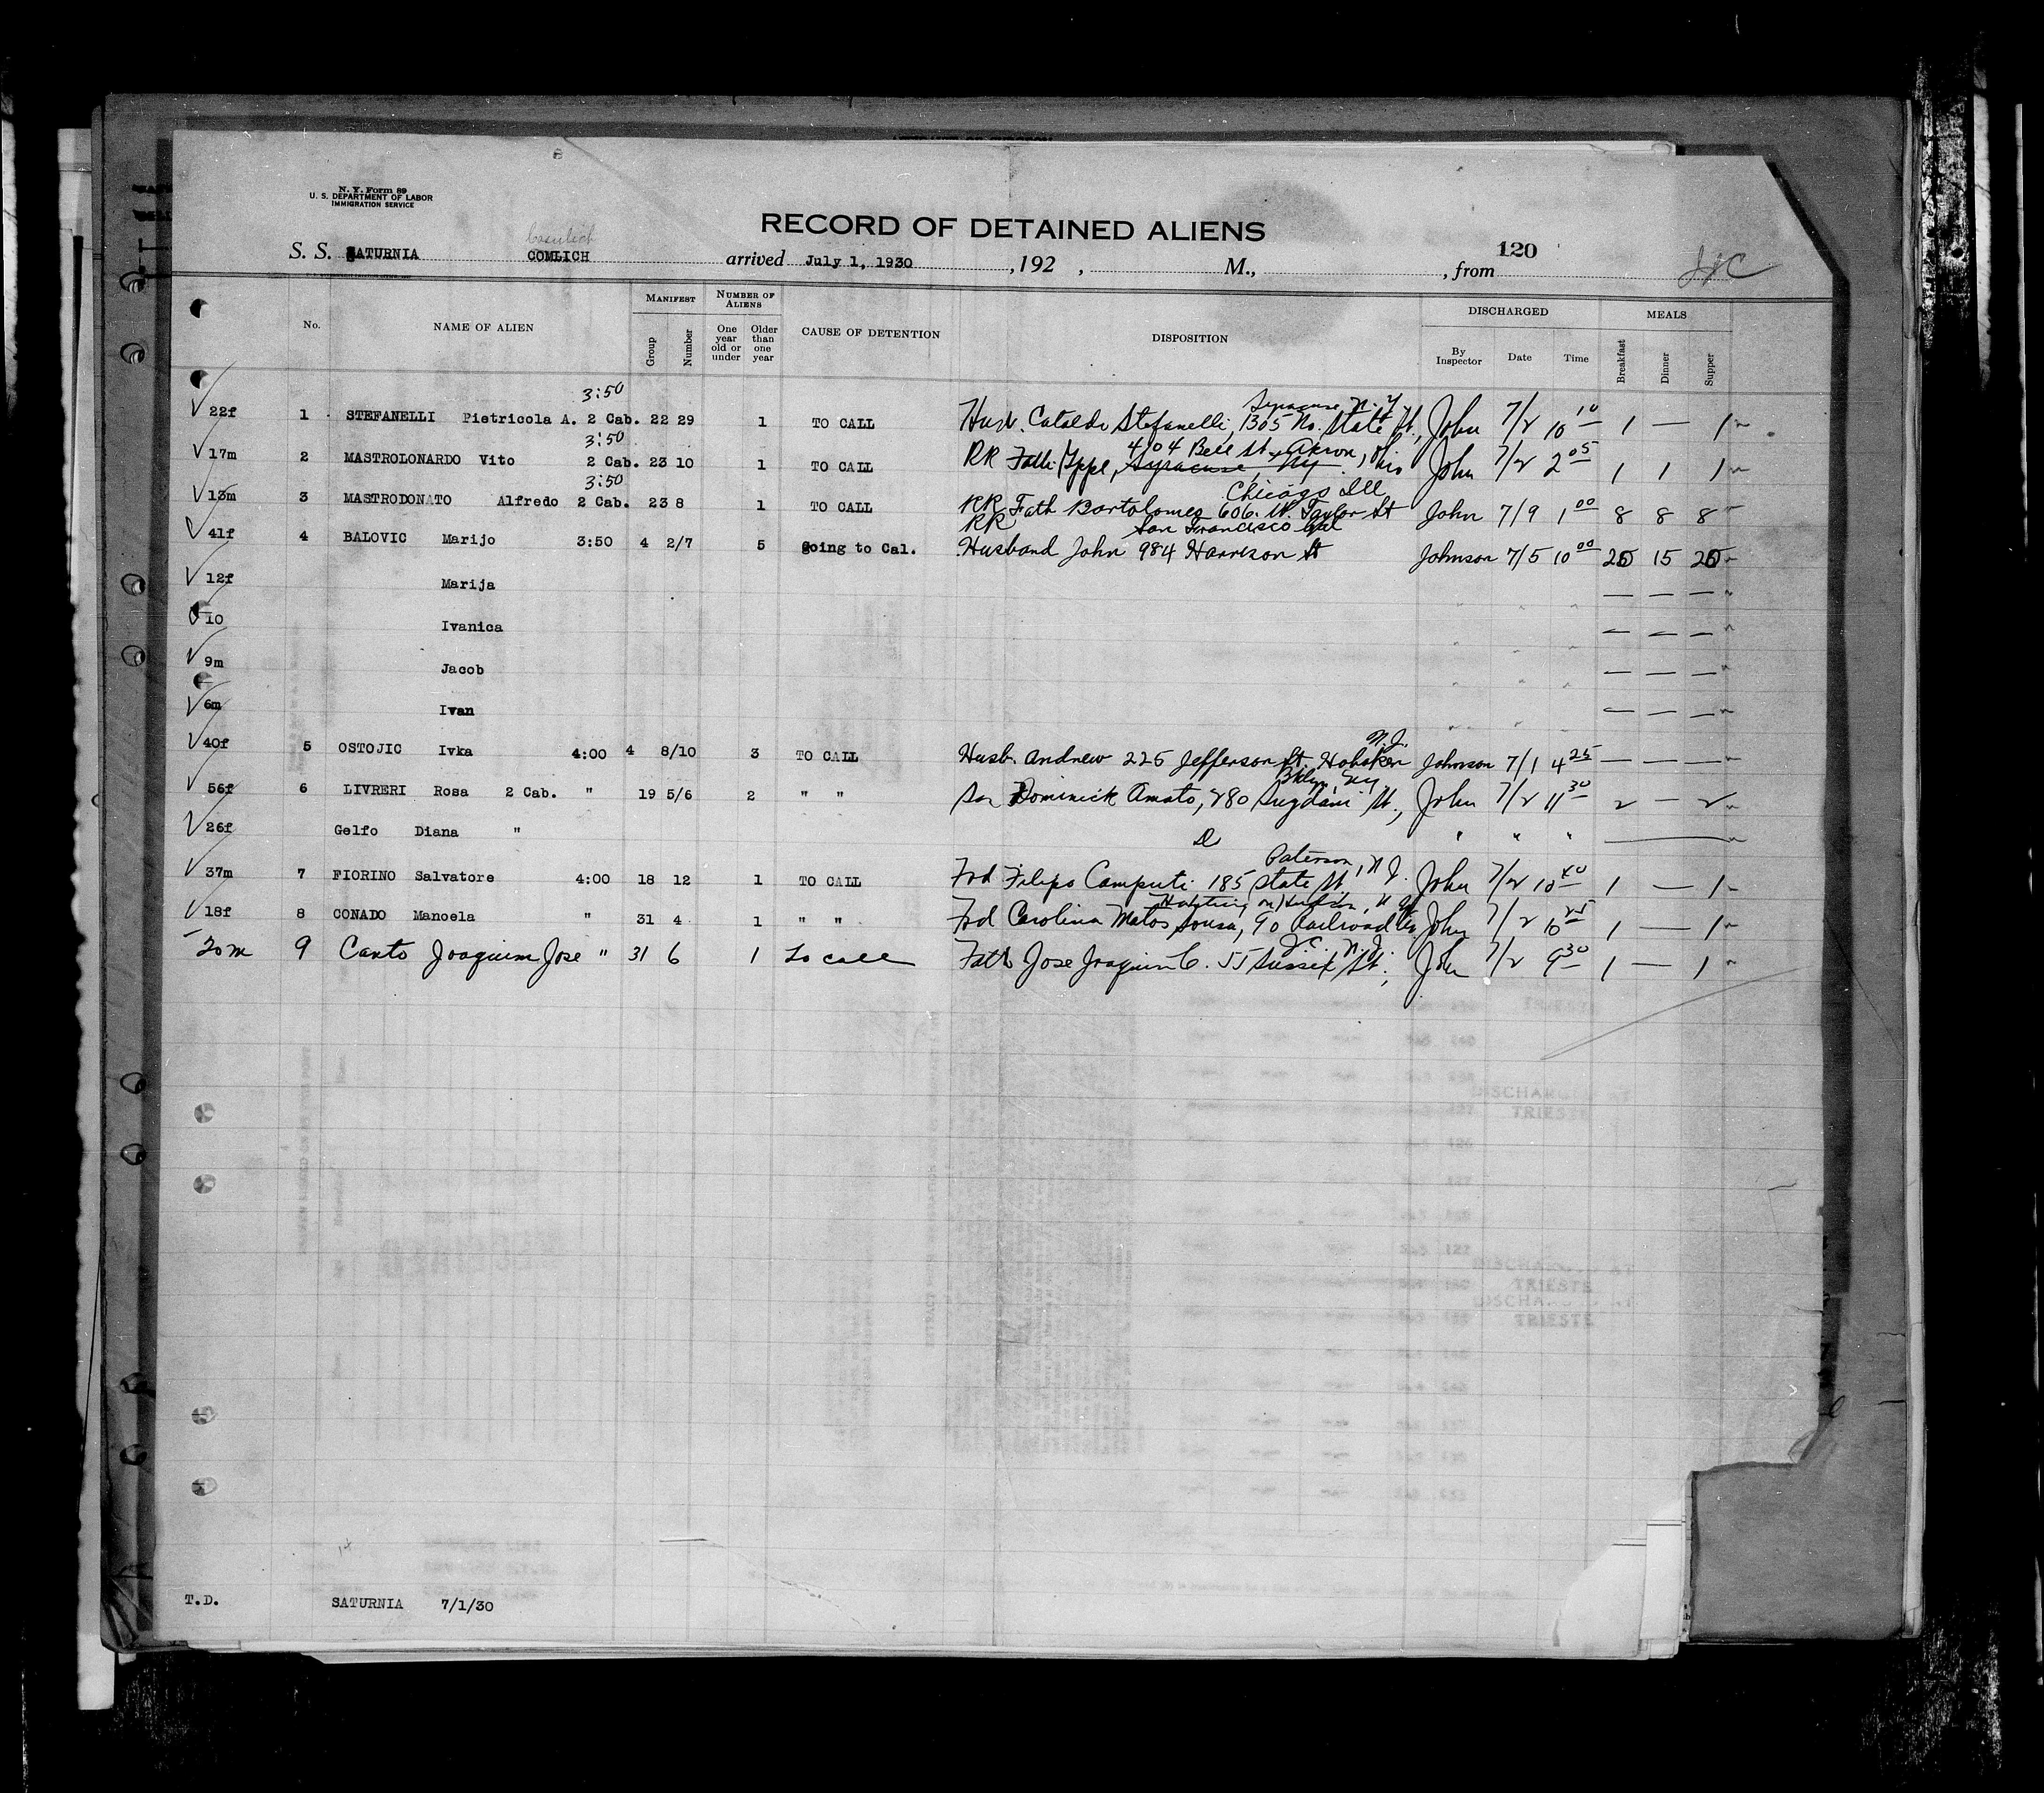 N. Y. Form 89
U. S. DEPARTMENT OF LABOR
IMMIGRATION SERVICE
RECORD OF DETAINED ALIENS
120
Cosulich
S. S. SATURNIA COMLICH arrived July 1, 1930 , 192 , M., , from
No. NAME OF ALIEN MANIFEST Group Number NUMBER OF ALIENS One year old or under Older than one year CAUSE OF DETENTION DISPOSITION DISCHARGED By Inspector Date Time MEALS Breakfast Dinner Supper
3:50 Syracuse N.Y.
22f 1 STEFANELLI Pietricola A. 2 Cab. 22 29 1 TO CALL Husb. Cataldo Stefanelli, 1305 No. State St., John 7/2 10 10 1 — 1
3:50 4404 Bell St., Akron, Ohio
17m 2 MASTROLONARDO Vito 2 Cab. 23 10 1 TO CALL RR Syracuse, NY John 7/2 2 05 1 1 1
3:50 Chicago Ill
13m 3 MASTRODONATO Alfredo 2 Cab. 23 8 1 TO CALL RR Fath Bartolomeo 606 W. Taylor St John 7/9 1 00 8 8 8
RR San Francisco Cal
41f 4 BALOVIC Marijo 3:50 4 2/7 5 going to Cal. Husband John 984 Harrison St Johnson 7/5 10 00 20 15 20
12f Marija — — —
10 Ivanica — — —
9m Jacob — — —
6m Ivan — — —
N.J.
40f 5 OSTOJIC Ivka 4:00 4 8/10 3 TO CALL Husb. Andrew 225 Jefferson St. Hoboken Johnson 7/1 4 25 — — —
Bklyn, NY
56f 6 LIVRERI Rosa 2 Cab. " 19 5/6 2 " " Son Dominick Amato, 280 St., John 7/2 11 30 2 — 2
26f Gelfo Diana " " " "
Paterson, N.J.
37m 7 FIORINO Salvatore 4:00 18 12 1 TO CALL Frd Filipo Computi 185 State St John 7/2 10 40 1 — 1
Hastings on Hudson, N.Y.
18f 8 CONADO Manoela " 31 4 1 " " Frd Carolina Matos Sousa, 90 Railroad Av John 7/2 10 25 1 — 1
J.C. N.J.
20m 9 Canto Joaquim Jose " 31 6 1 To call Fath Jose Joaquim C. 55 Sussex St., John 7/2 9 30 1 — 1
DISCHARGED AT
TRIESTE
T.D. SATURNIA 7/1/30